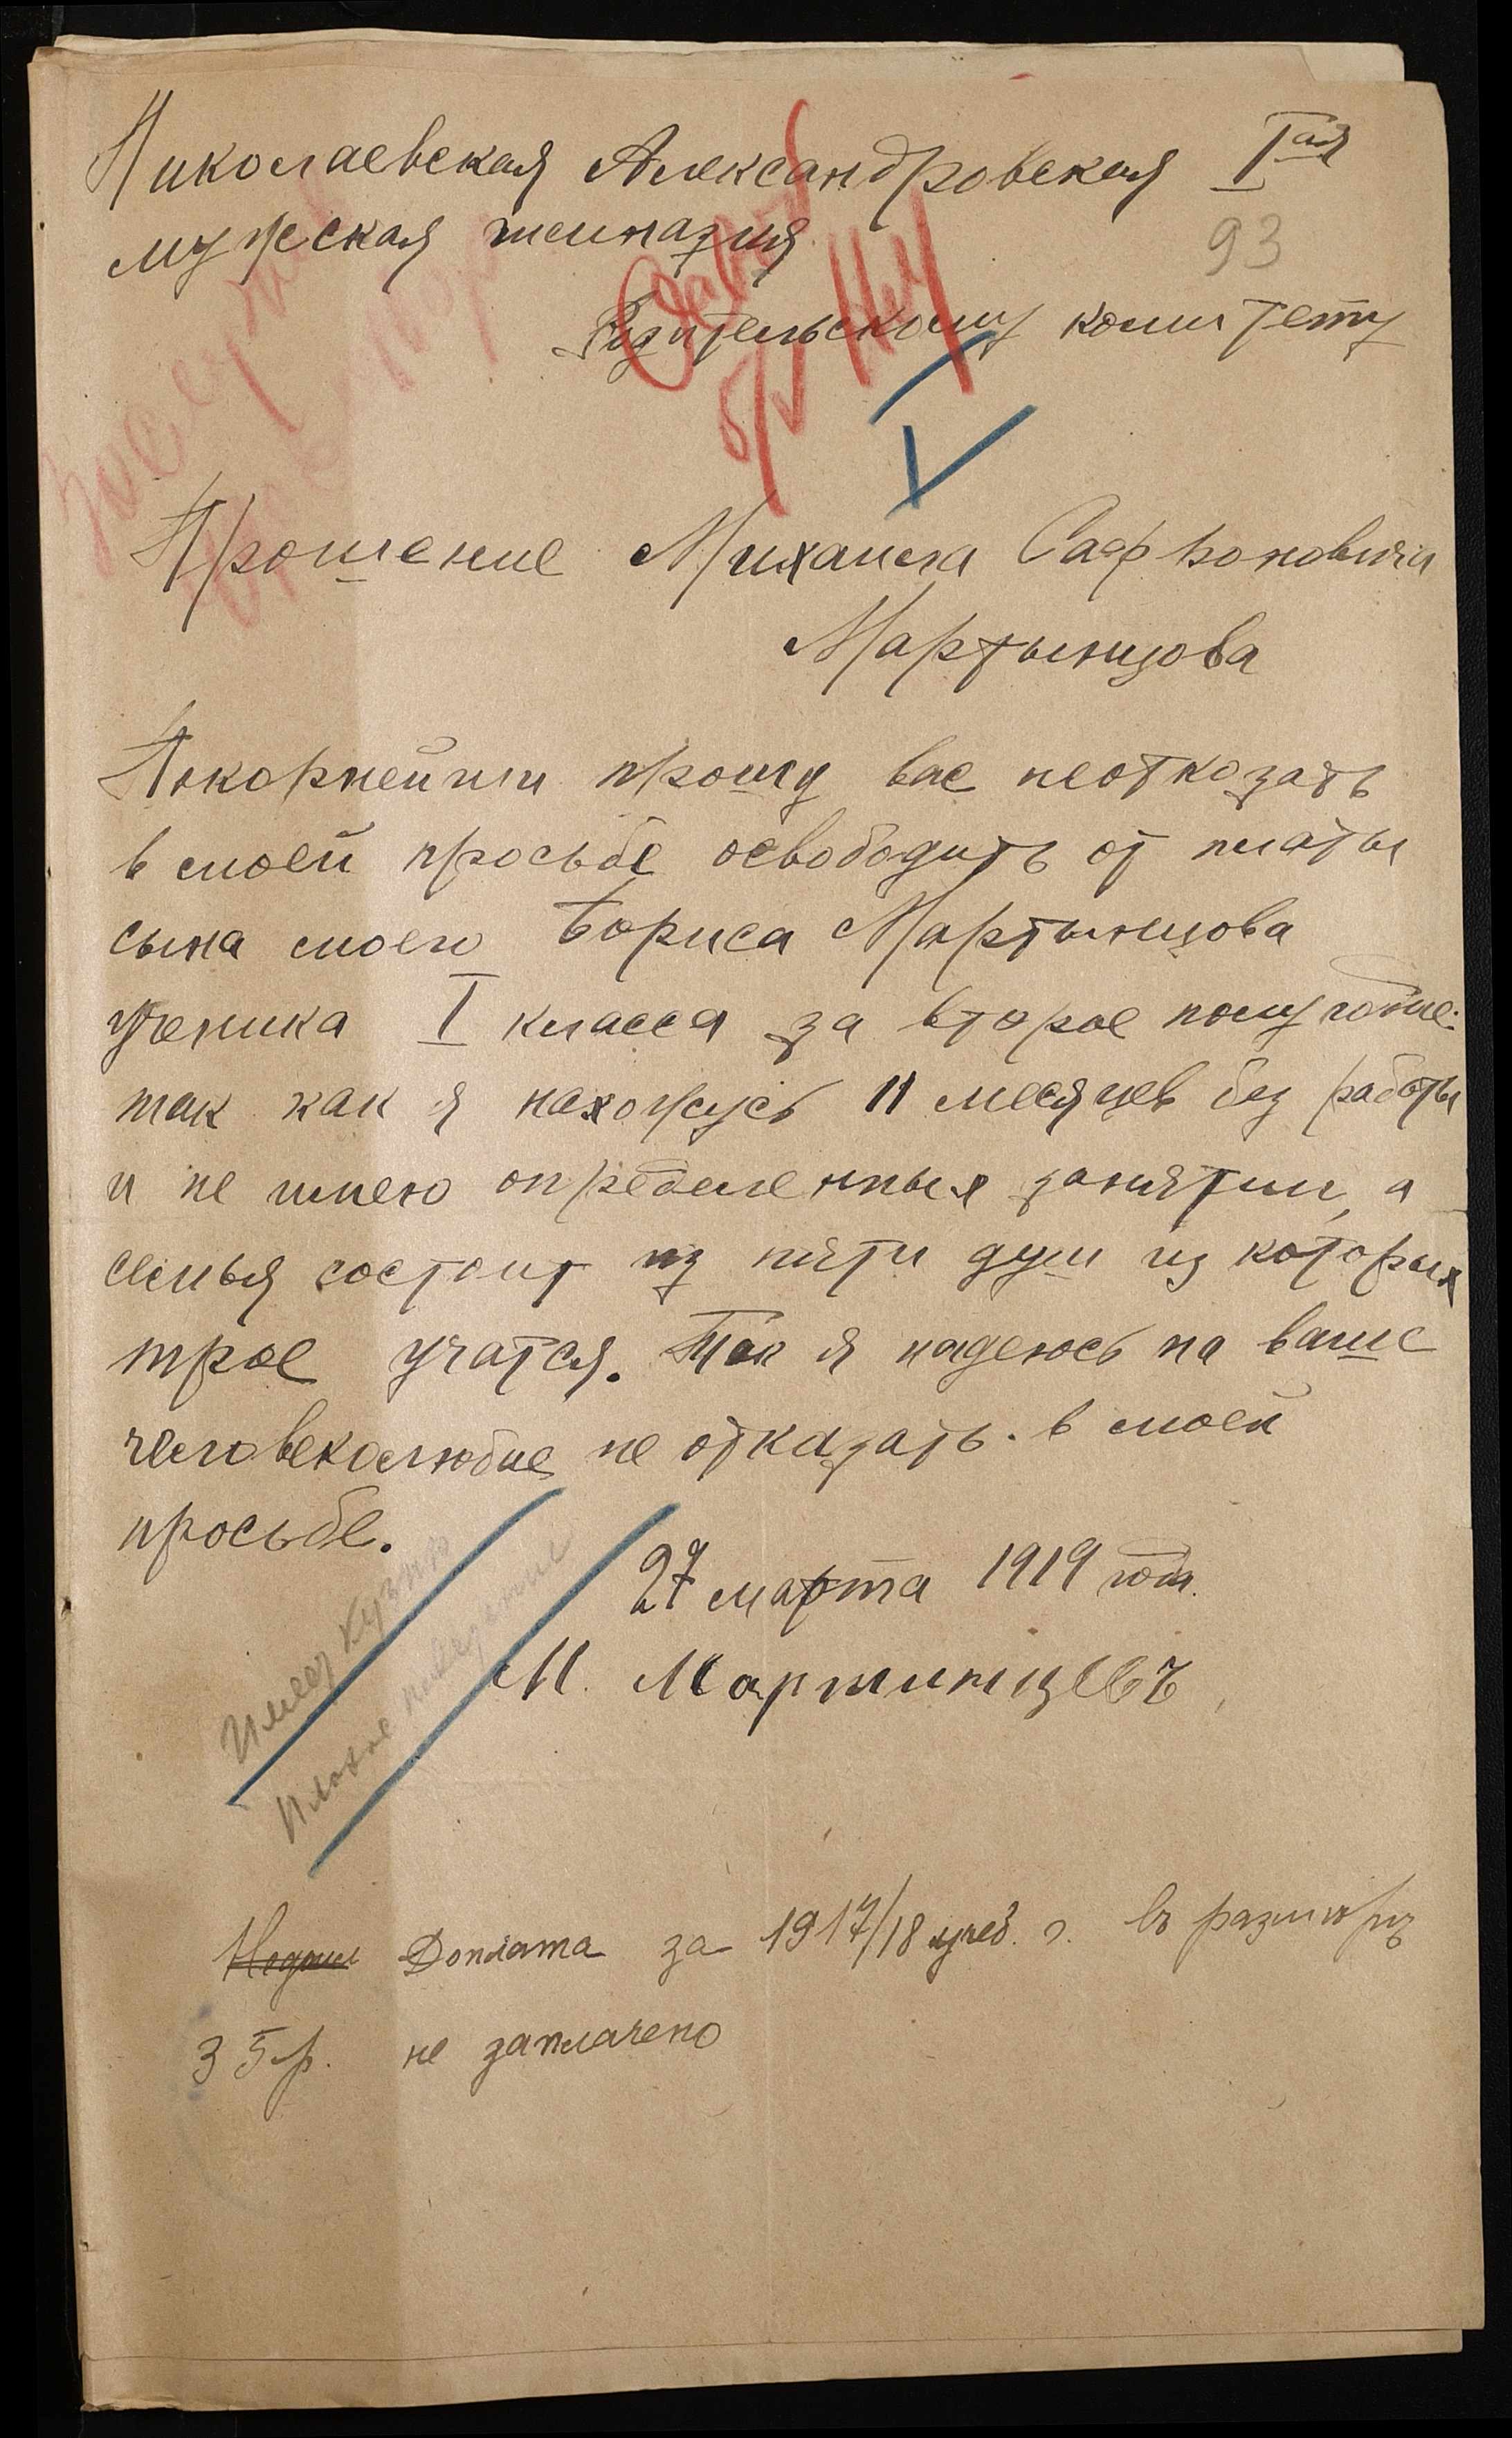 Николаевская Александровская Iая
мужская гимназия
93
Родительскому комитету
Прошение Михаила Сафроновича
Мартынцова
Покорнейши прошу вас неотказать
в моей просьбе освободить от платы
сына моего Бориса Мартынцова
ученика I класса за второе полугодие
так как я нахожусь 11 месяцев без работы
и не имею определенных занятии, а
семья состоит из пяти душ из которых
трое учатся. Так я надеюсь на ваше
человеколюбие не отказать в моей
просьбе.
27 марта 1919 года.
М. Мартинцевъ
Имеет
Плохое поведение
Доплата за 1917/18 учеб. г. въ размѣрѣ
35 р. не заплачено